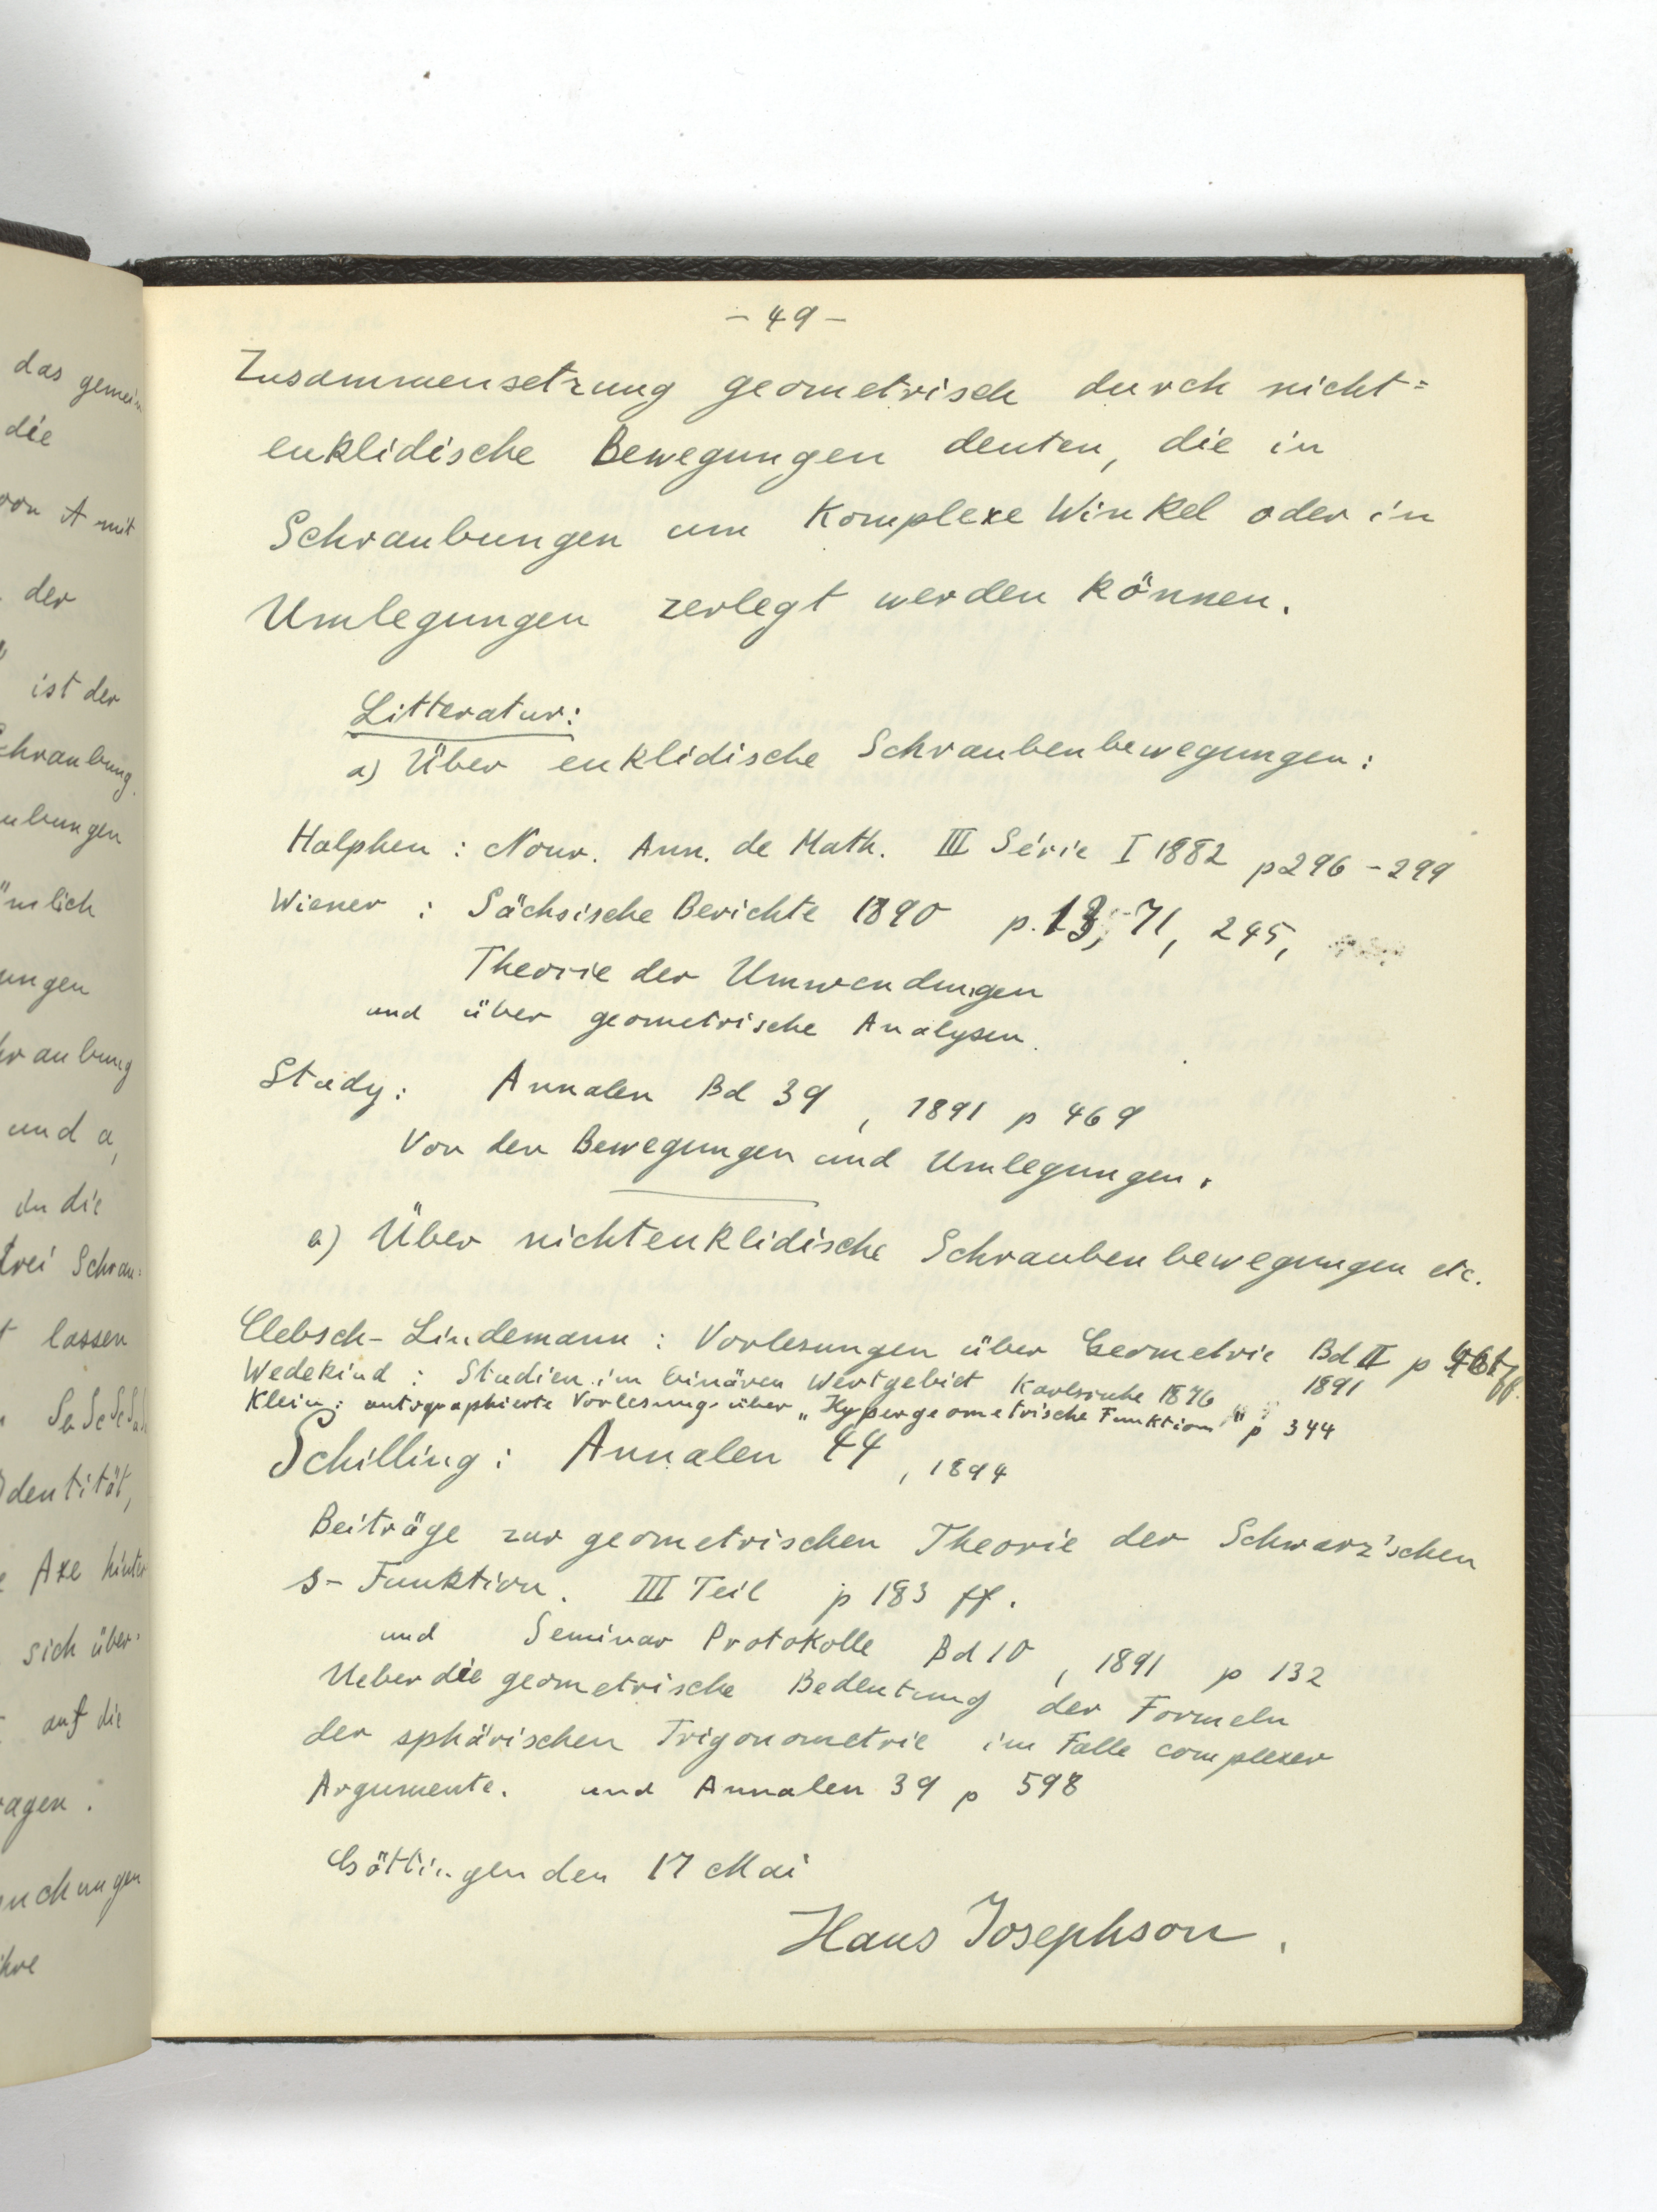 das gemein
die
von A mit
der
ist der
chraubung.
ubungen
ömlich
ungen
hraubung
und a,
in die
drei Schrau=
t lassen
Identität,
Axe hinter
sich über=
auf die
ragen.
uchungen
ihre
- 49 -
Zusammensetzung geometrisch durch nicht=
euklidische Bewegungen deuten, die in
Schraubungen um Komplexe Winkel oder in
Umlegungen zerlegt werden können.
Litteratur:
a) Über euklidische Schraubenbewegungen:
Halphen : Nouv. Ann. de Math. III Série I 1882 p 296 - 299
Wiener : Sächsische Berichte 1890 p. 13, 71, 245,
Theorie der Umwendungen
und über geometrische Analysen.
Study: Annalen Bd 39, 1891 p 469
Von den Bewegungen und Umlegungen.
a) Über nichteuklidische Schraubenbewegungen etc.
Clebsch-Lindemann : Vorlesungen über Geometrie Bd II p ff.
1891
Wedekind : Studien im binären Wertgebiet Karlsruhe 1876
Klein: autographierte Vorlesungen über „Hypergeometrische Funktion" p 344
Schilling: Annalen 44, 1894
Beiträge zur geometrischen Theorie der Schwarz'schen
s-Funktion. III Teil p 183 ff.
und Seminar Protokolle Bd 10, 1891 p 132
Ueber die geometrische Bedeutung der Formeln
der sphärischen Trigonometrie im Falle complexer
Argumente. und Annalen 39 p 598
Göttingen den 17 Mai
Hans Josephson.